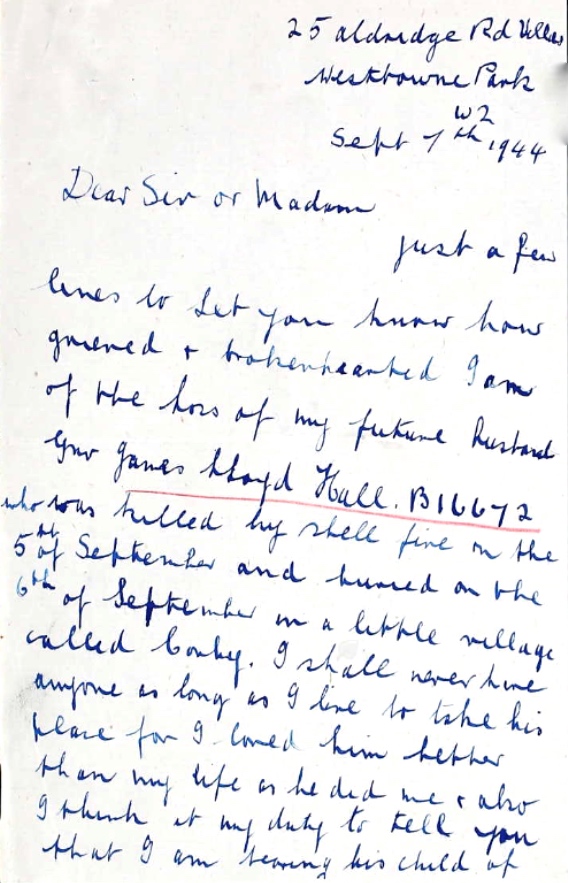 25 Aldridge Rd Villas
Westbourne Park
W2
Sept 7th 1944
Dear Sir or Madam
just a few
lines to let you know how
grieved & brokenhearted I am
of the loss of my future husband
Gnr James Lloyd Hall. B16672
who was killed by shell fire on the
5th of September and buried on the
6th of September in a little village
called Conby. I shall never have
anyone as long as I live to take his
place for I loved him better
than my life as he did me & also
I think it my duty to tell you
that I am bearing his child of